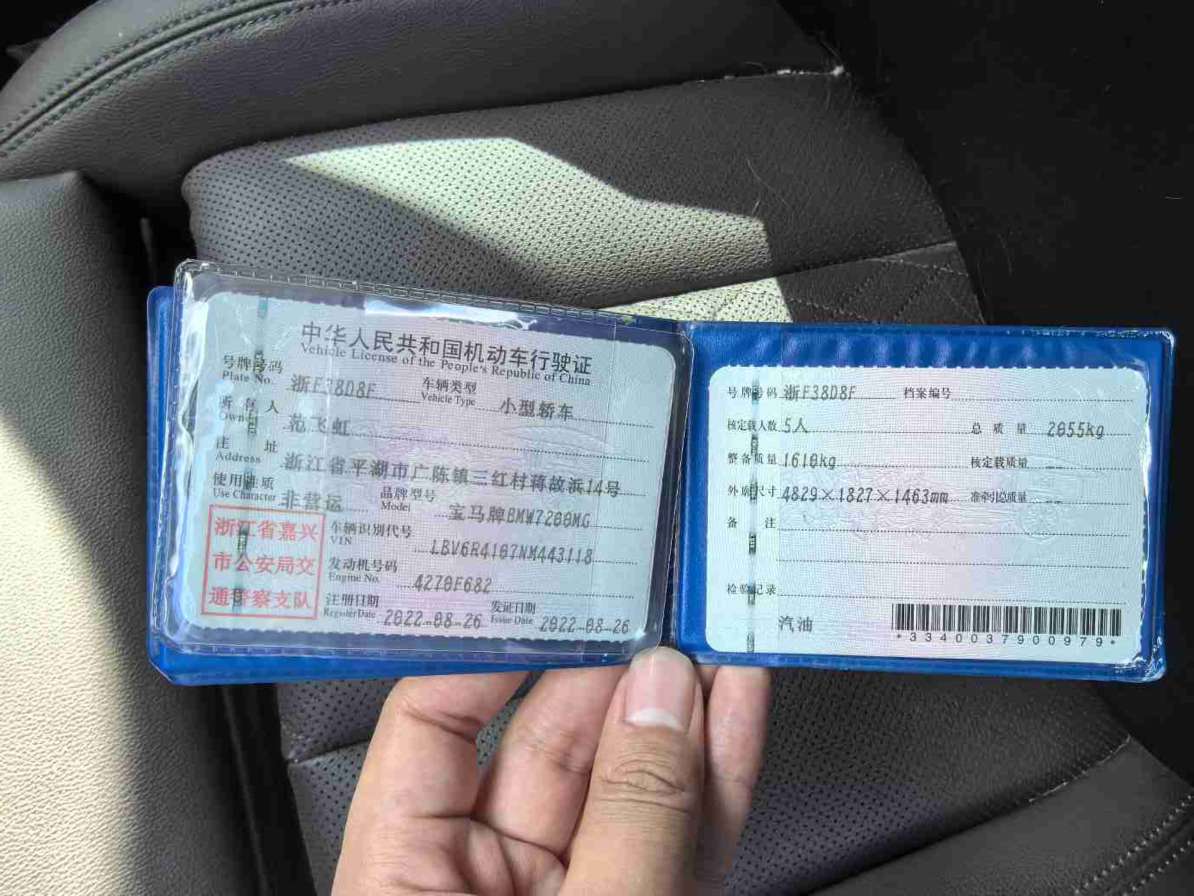 中华人民共和国机动车行驶证
Vehicle License of the People's Republic of China
号牌号码 Plate No. 浙F38D8F 车辆类型 Vehicle Type 小型轿车
所有人 Owner 范飞虹
住址 Address 浙江省平湖市广陈镇三红村蒋故浜14号
使用性质 Use Character 非营运 品牌型号 Model 宝马牌BMW7200MG
浙江省嘉兴
市公安局交
通警察支队
车辆识别代号 VIN LBV6R4107NM443118
发动机号码 Engine No. 4270F682
注册日期 Register Date 2022-08-26 发证日期 Issue Date 2022-08-26
号牌号码 浙F38D8F 档案编号
核定载人数 5人 总质量 2055kg
整备质量 1610kg 核定载质量 --
外廓尺寸 4829×1827×1463mm 准牵引总质量 --
备注
检验记录
汽油
*3340037900979*